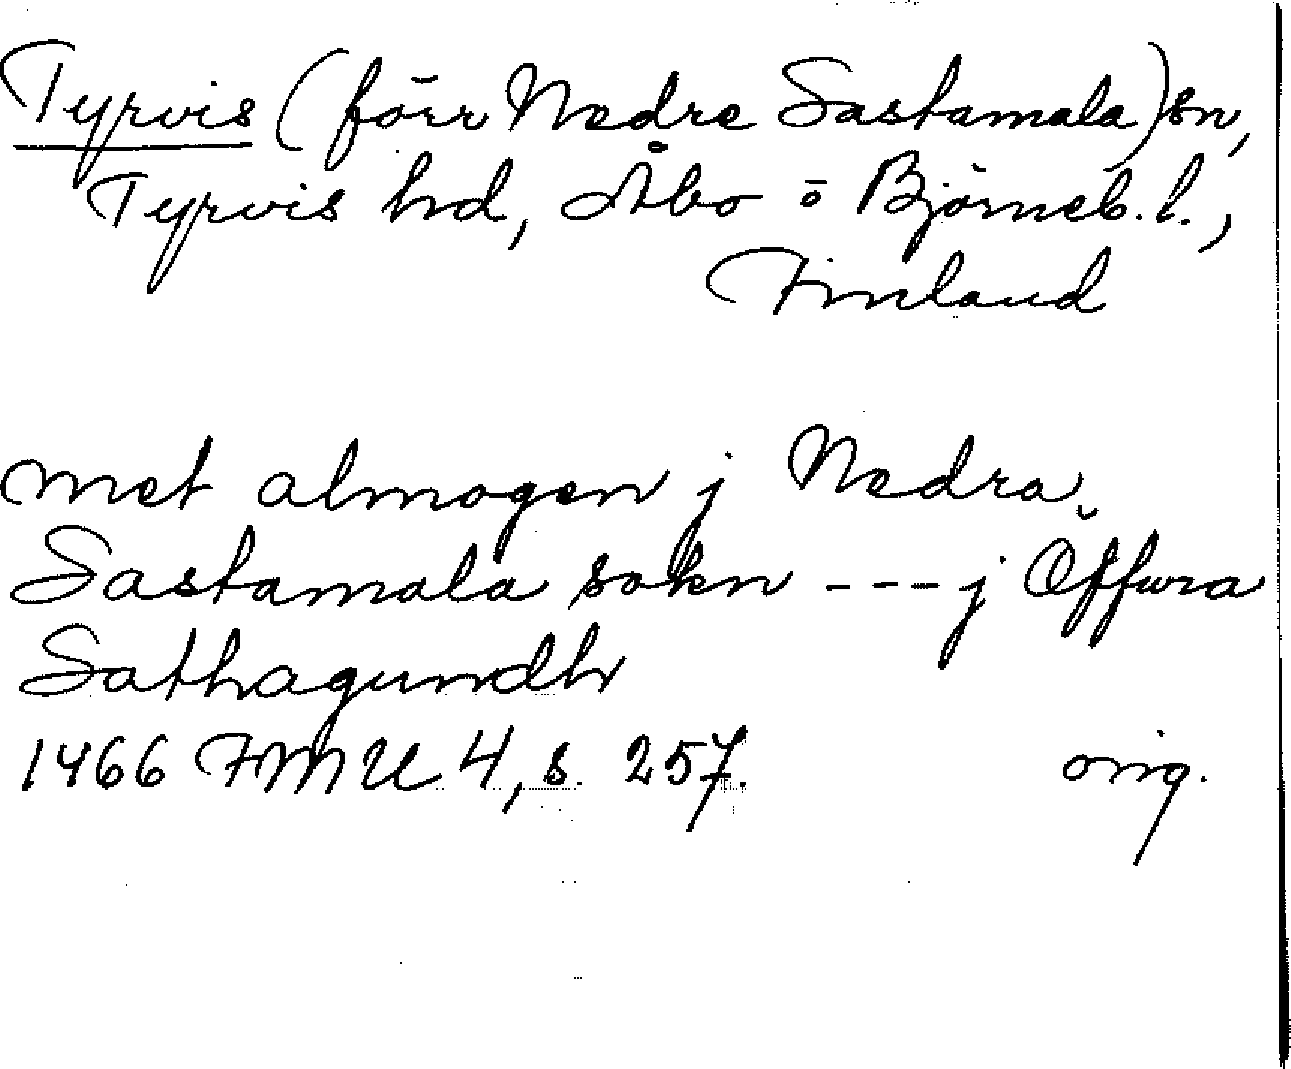 Tyrvis (förr Nedre Sastamala) sn,
Tyrvis hd, Åbo o Björneb. l.,
Finland
met almogen j Nedra
Sastamala sokn --- j Öffwra
Sathagundh
1466 FMU 4, s. 257.
orig.